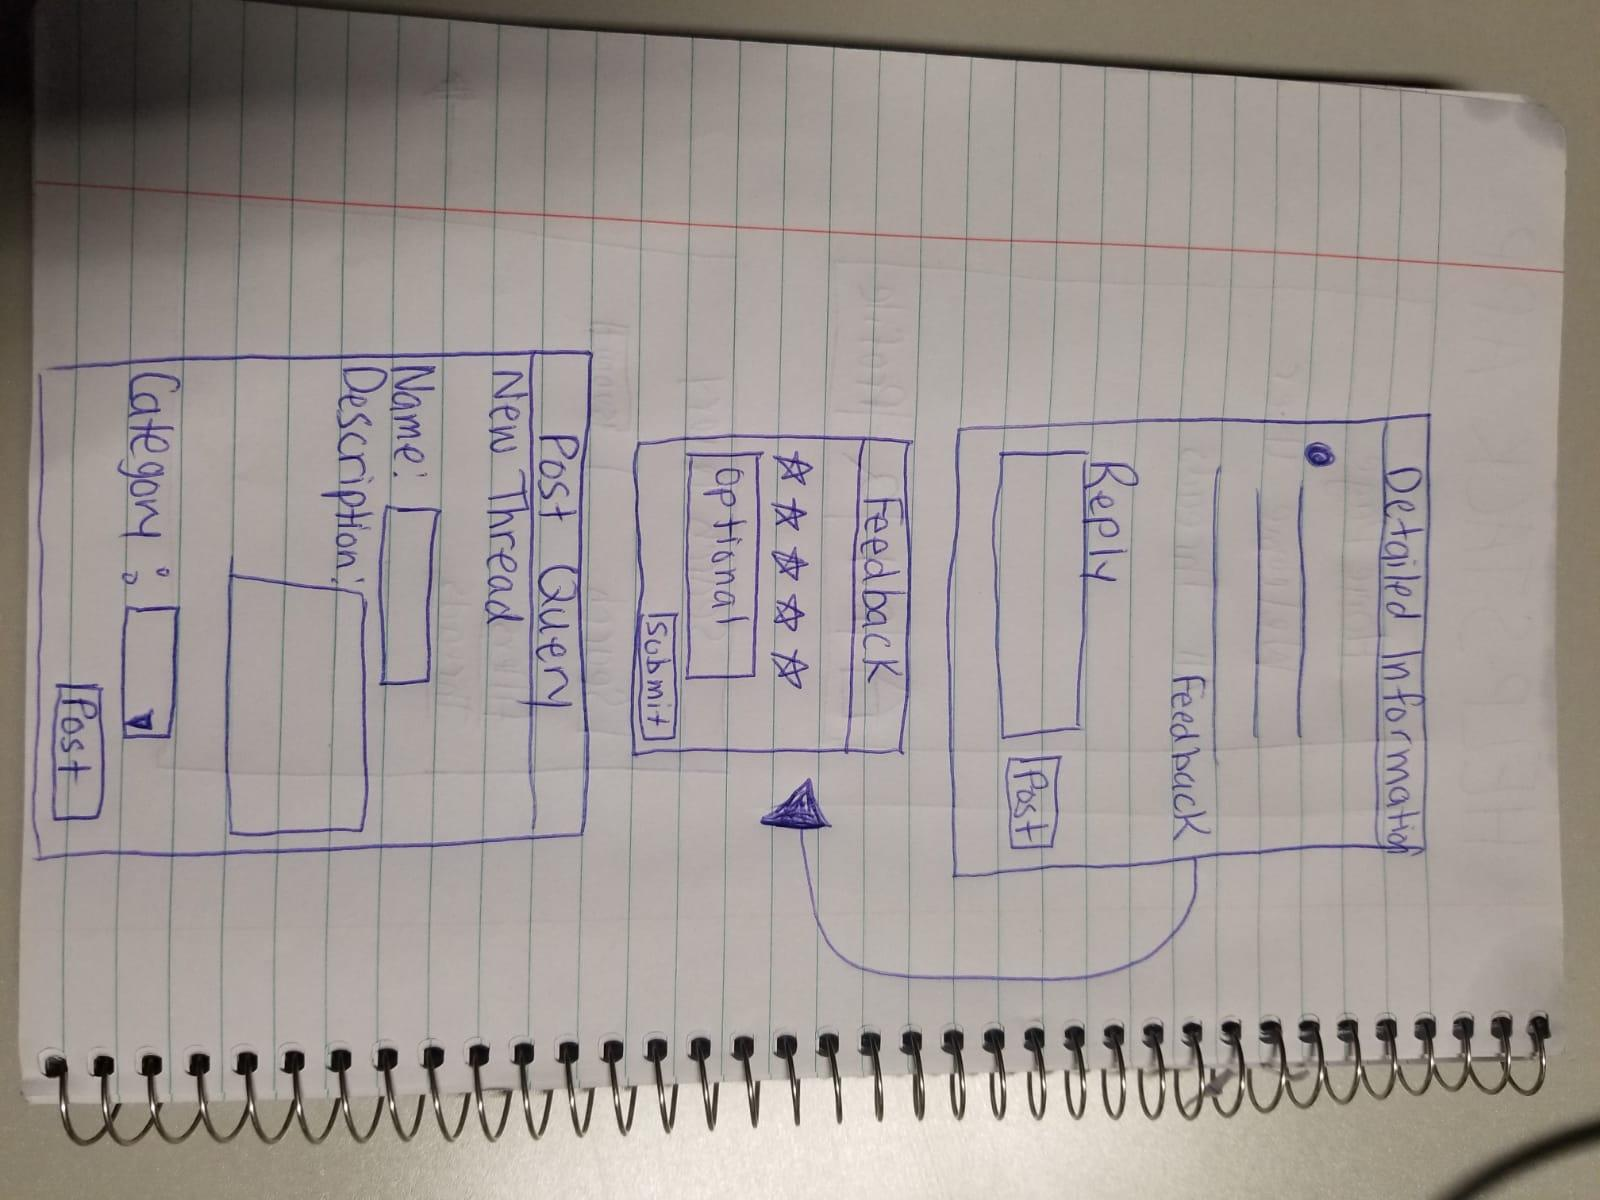 Detailed Information
Feedback
Reply
Post
Feedback
Optional
Submit
Post Query
New Thread
Name:
Description:
Category:
Post